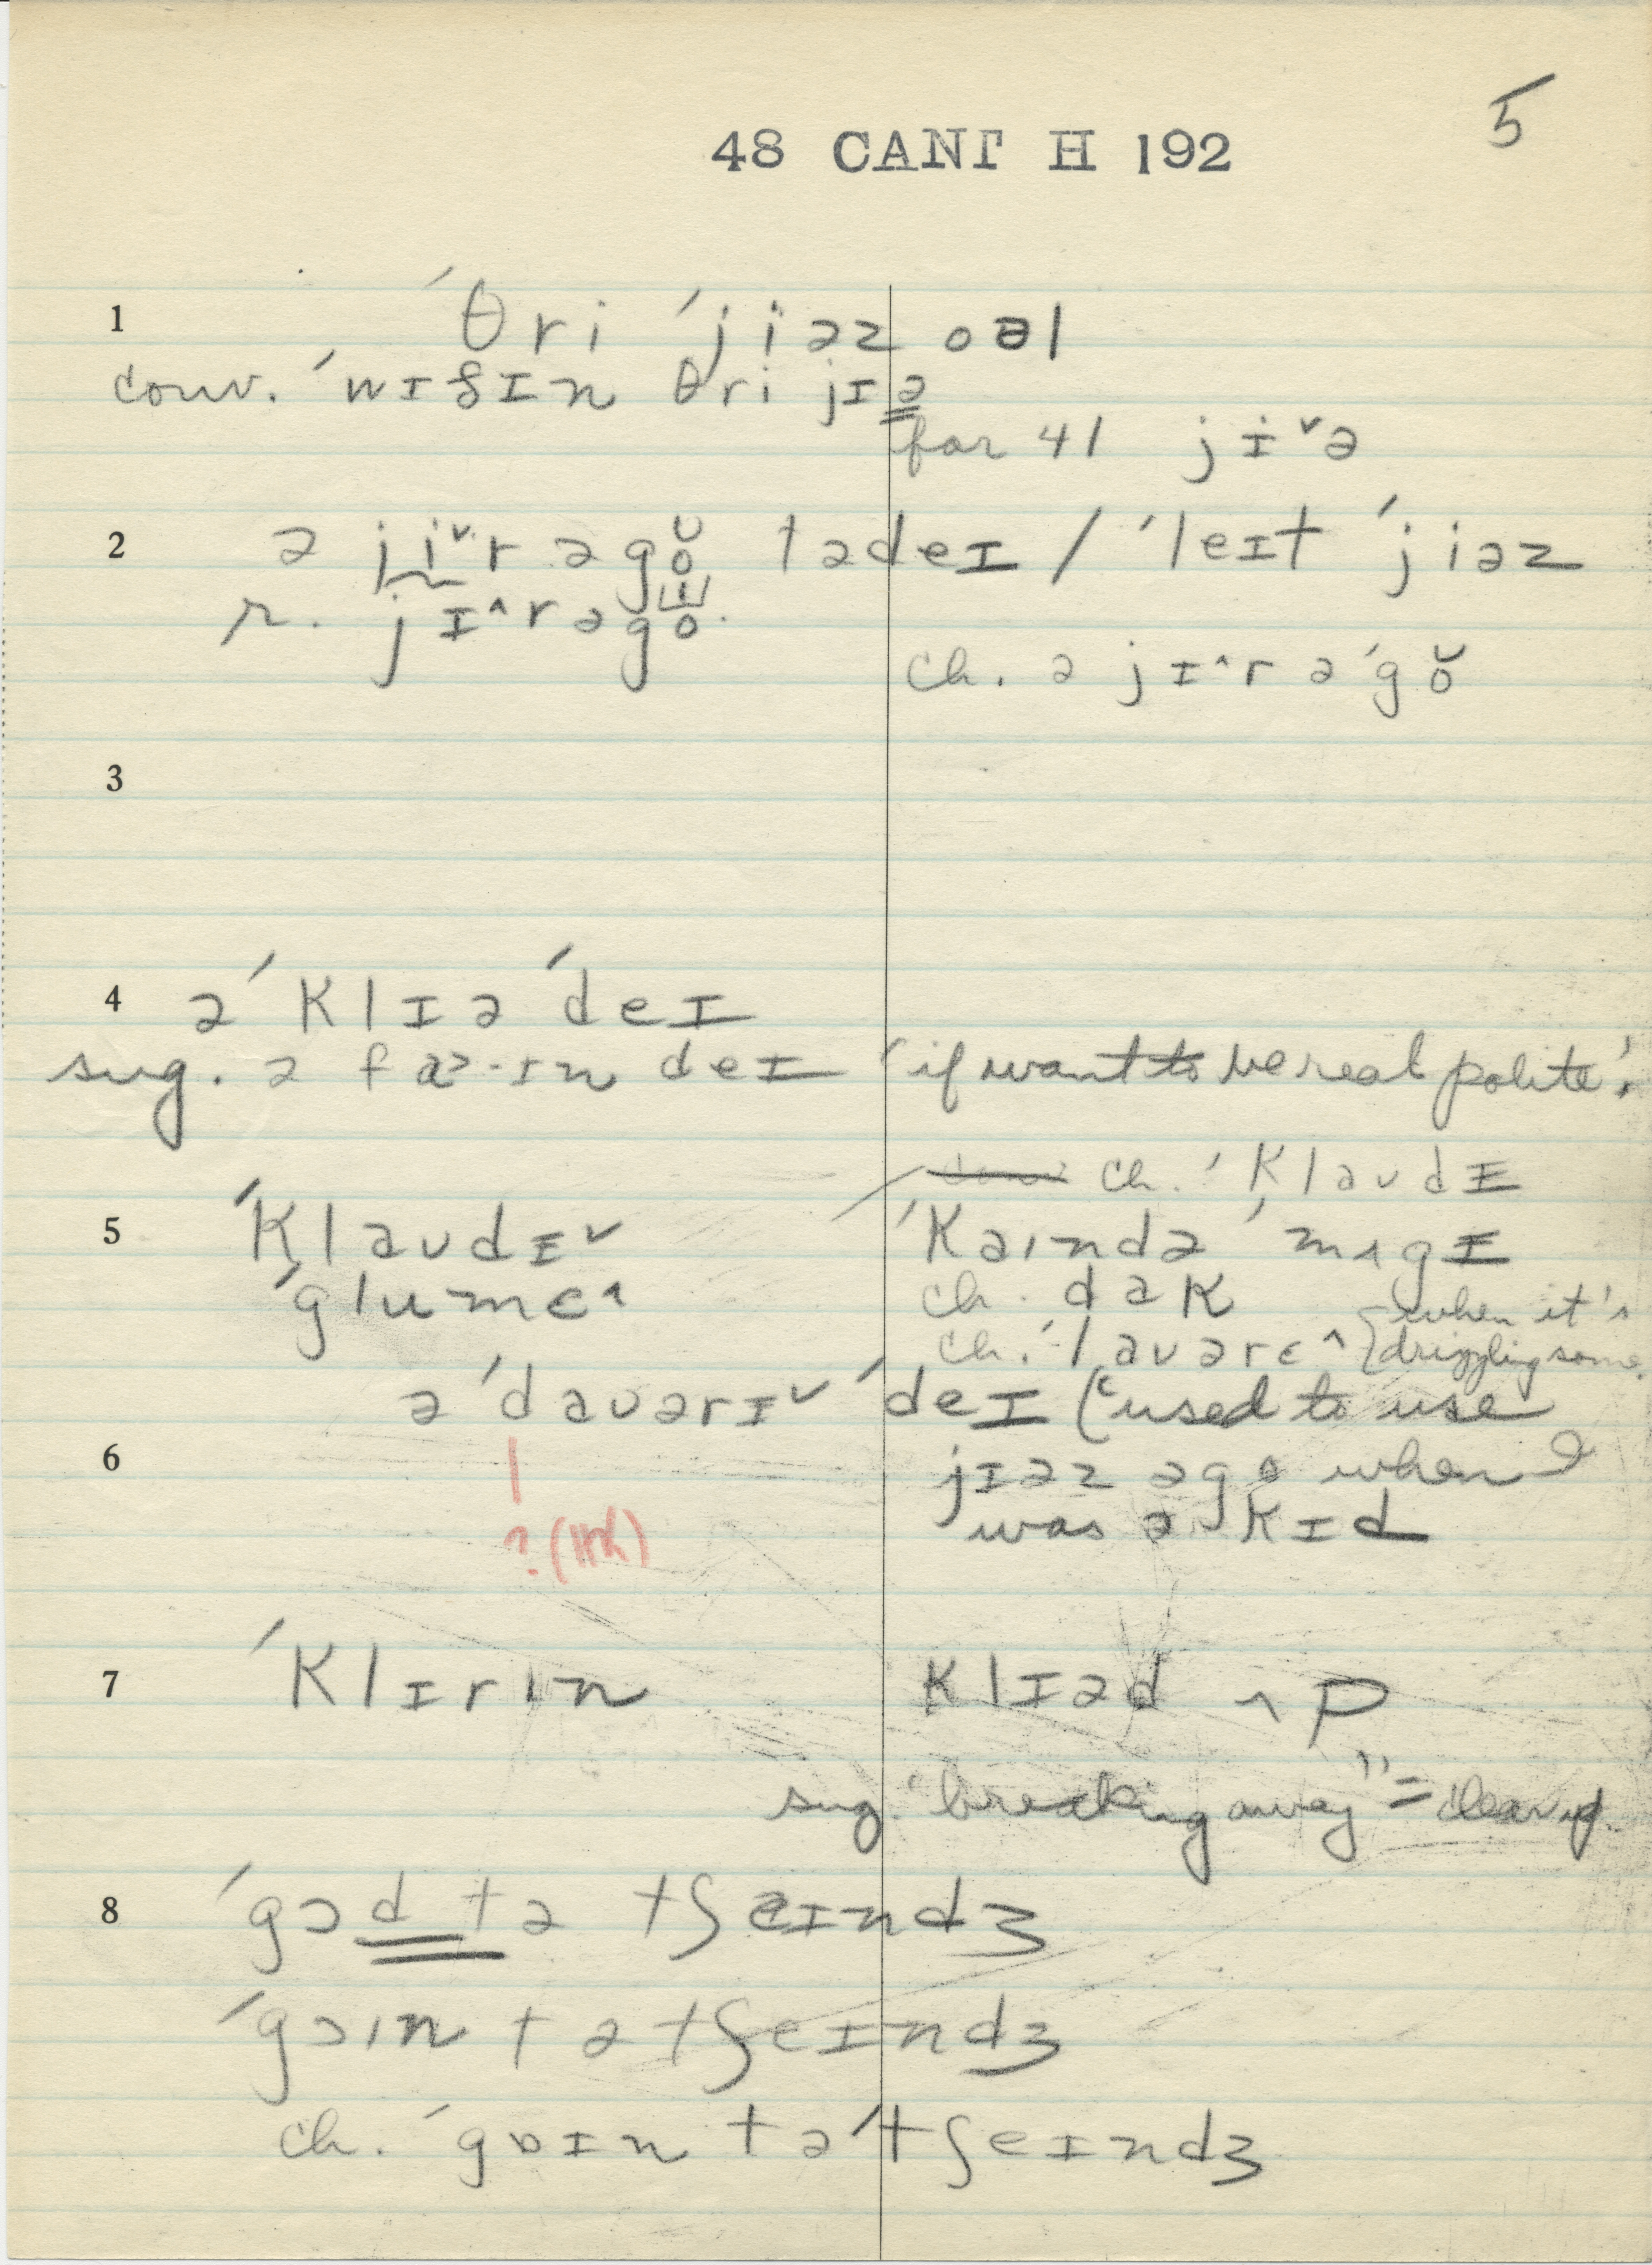 5
48 CANT H 192
1 ˊθri ˊjiəz oəl
conv. ˊwɪðɪn θri jɪə
for 41 jɪˇə
2 ə jiˇr əgŏ tədeɪ / ˊleɪt ˊjiəz
r. jɪ^r əgo
ch. ə jɪ^r əˊgŏ
3
4 əˊklɪəˊdeɪ
sug. ə fæ·ɪn deɪ 'if want to be real polite'.
ch. ˊklaudɪ
5 ˊklaudɪˇ ˊkaɪndə ˊmʌgɪ
ˊglumɛ^ ch. dak
ch. ˊlauərɛ^ {when it's drizzling some.
əˊdauərɪˇ ˊdeɪ ("used to use
6 jɪəz əgo when I
was ə kɪd
? (HK)
7 ˊklɪrɪn klɪəd ʌp
sug. "breaking away" = clear up.
8 ˊgɔd tə tʃeɪndʒ
ˊgɔɪn tə tʃeɪndʒ
ch. ˊgoɪn təˊtʃeɪndʒ